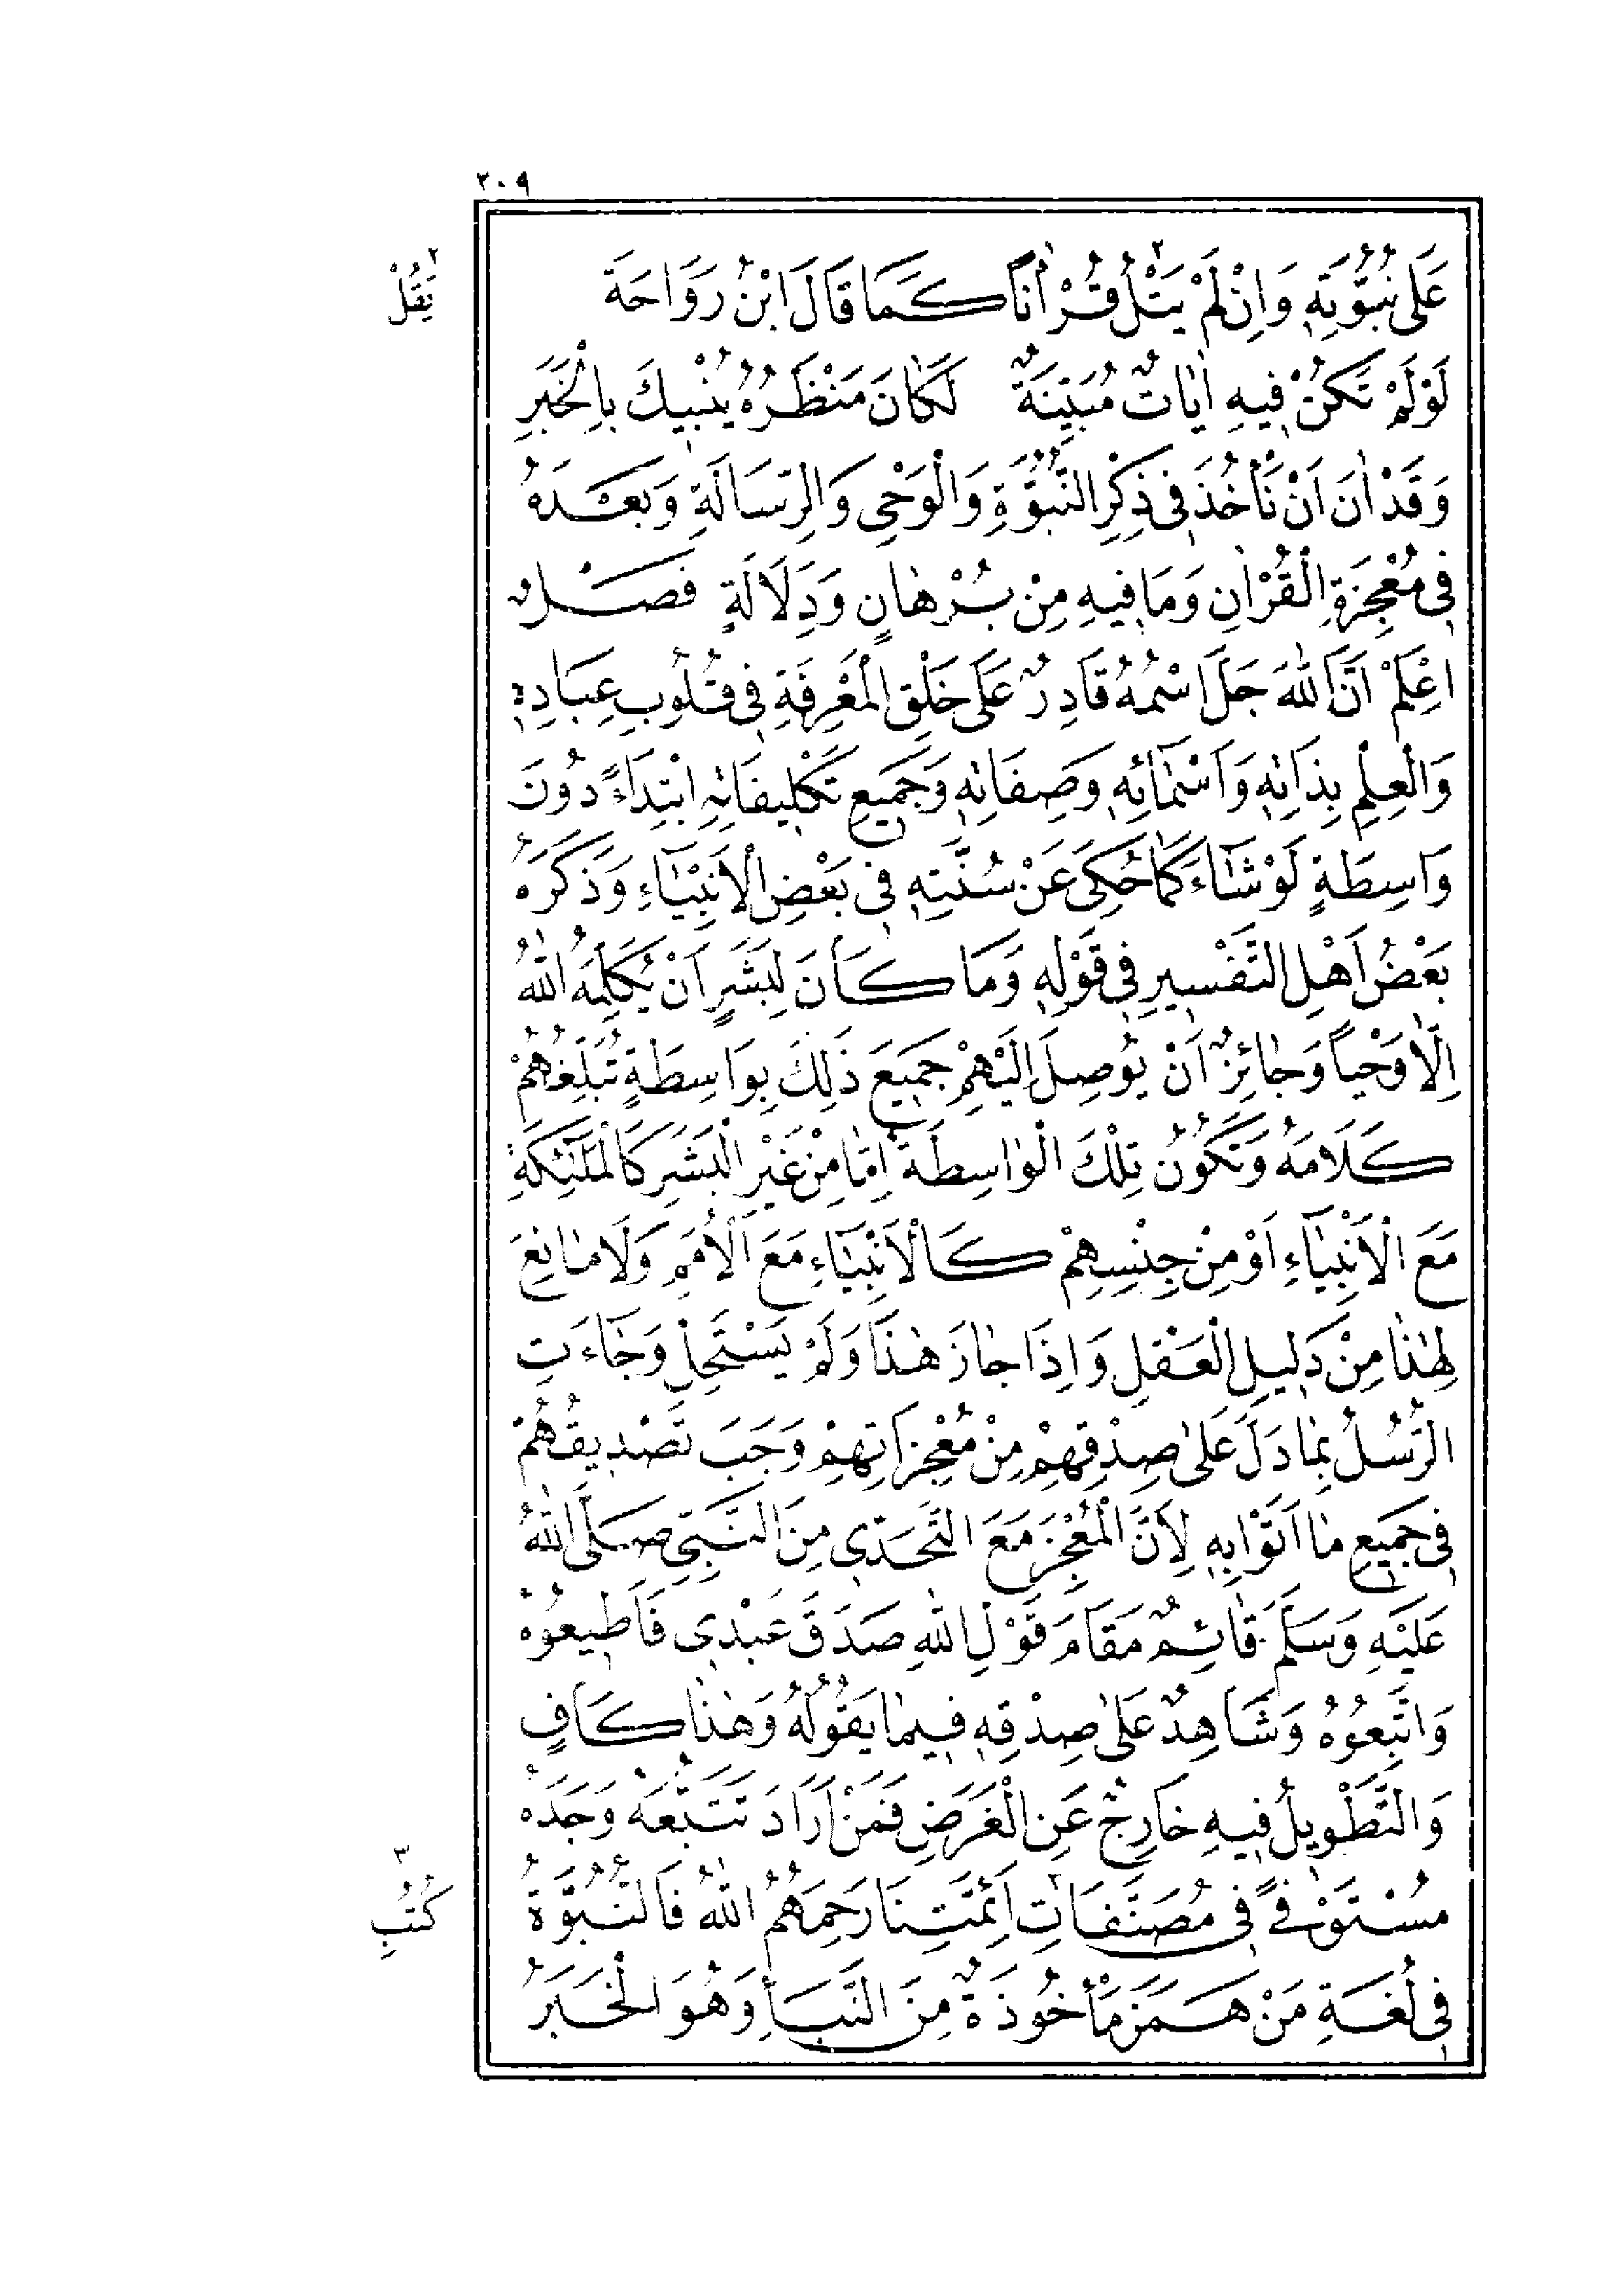 ٢٠٩
عَلَى نُبُوَّتِهِ وَاِنْ لَمْ يَتْلُ ٢ قُرْاٰنًا كَمَا قَالَ ابْنُ رَوَاحَةَ
٢ يَقُلْ
لَوْ لَمْ تَكُنْ فِيهِ اٰيَاتٌ مُبَيِّنَةٌ لَكَانَ مَنْظَرُهُ يُنْبِيكَ بِالْخَبَرِ
وَقَدْ اٰنَ اَنْ نَأْخُذَ فِى ذِكْرِ النُّبُوَّةِ وَالْوَحْىِ وَالرِّسَالَةِ وَبَعْدَهُ
فِى مُعْجِزَةِ الْقُرْاٰنِ وَمَا فِيهِ مِنْ بُرْهَانٍ وَدِلَالَةٍ فَصْلٌ
اعْلَمْ اَنَّ اللّٰهَ جَلَّ اسْمُهُ قَادِرٌ عَلَى خَلْقِ الْمَعْرِفَةِ فِى قُلُوبِ عِبَادِهِ
وَالْعِلْمِ بِذَاتِهِ وَاَسْمَائِهِ وَصِفَاتِهِ وَجَمِيعِ تَكْلِيفَاتِهِ ابْتِدَاءً دُونَ
وَاسِطَةٍ لَوْ شَاءَ كَمَا حُكِىَ عَنْ سُنَّتِهِ فِى بَعْضِ الْاَنْبِيَاءِ وَذَكَرَهُ
بَعْضُ اَهْلِ التَّفْسِيرِ فِى قَوْلِهِ وَمَا كَانَ لِبَشَرٍ اَنْ يُكَلِّمَهُ اللّٰهُ
اِلَّا وَحْيًا وَجَائِزٌ اَنْ يُوصِلَ اِلَيْهِمْ جَمِيعَ ذٰلِكَ بِوَاسِطَةٍ تُبَلِّغُهُمْ
كَلَامَهُ وَتَكُونُ تِلْكَ الْوَاسِطَةُ اِمَّا مِنْ غَيْرِ الْبَشَرِ كَالْمَلٰئِكَةِ
مَعَ الْاَنْبِيَاءِ اَوْ مِنْ جِنْسِهِمْ كَالْاَنْبِيَاءِ مَعَ الْاُمَمِ وَلَا مَانِعَ
لِهٰذَا مِنْ دَلِيلِ الْعَقْلِ وَاِذَا جَازَ هٰذَا وَلَمْ يَسْتَحِلْ وَجَاءَتِ
الرُّسُلُ بِمَا دَلَّ عَلٰى صِدْقِهِمْ مِنْ مُعْجِزَاتِهِمْ وَجَبَ تَصْدِيقُهُمْ
فِى جَمِيعِ مَا اَتَوْا بِهِ لِاَنَّ الْمُعْجِزَ مَعَ التَّحَدِّى مِنَ النَّبِىِّ صَلَّى اللّٰهُ
عَلَيْهِ وَسَلَّمَ قَائِمٌ مَقَامَ قَوْلِ اللّٰهِ صَدَقَ عَبْدِى فَاَطِيعُوهُ
وَاتَّبِعُوهُ وَشَاهِدٌ عَلٰى صِدْقِهِ فِيمَا يَقُولُهُ وَهٰذَا كَافٍ
وَالتَّطْوِيلُ فِيهِ خَارِجٌ عَنِ الْغَرَضِ فَمَنْ اَرَادَ تَتَبُّعَهُ وَجَدَهُ
مُسْتَوْفًى فِى مُصَنَّفَاتِ ٣ اَئِمَّتِنَا رَحِمَهُمُ اللّٰهُ فَالنُّبُوَّةُ
٣ كُتُبِ
فِى لُغَةِ مَنْ هَمَزَ مَأْخُوذَةٌ مِنَ النَّبَأِ وَهُوَ الْخَبَرُ